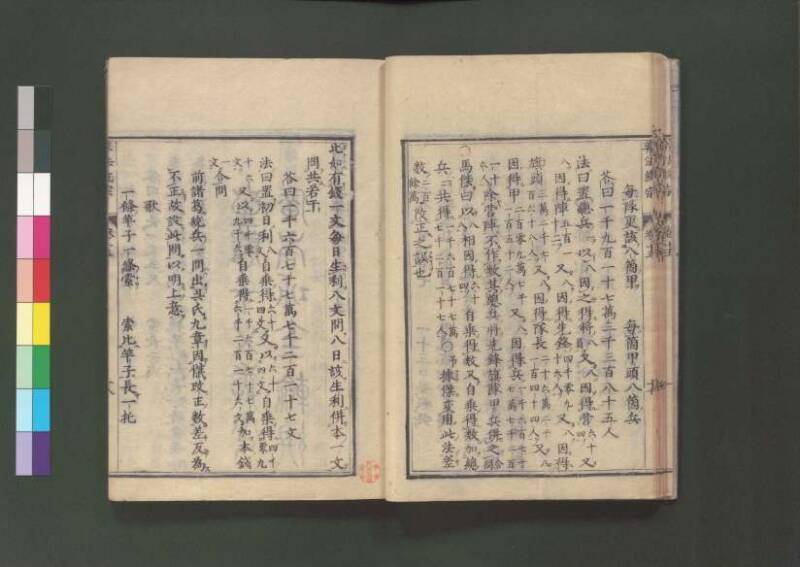 每隊更該八箇甲　每箇甲頭八箇兵
答曰一千九百一十七萬三千三百八十五人
法曰置總兵一以八因之得將八又八因得營六十四又
八因得陣五百一十二又八因得先鋒四千零九十六又八因得
旗頭三萬二千七百六十八又八因得隊長二十六萬二千一百四十四人又八
因得甲二百零九萬七千一百五十二人又八因得兵一千六百七十七萬七千二百一十六人
馬傑曰以八八相因得六十四自乘得數又自乘得數加總
兵一共得一千六百七十七萬七千二百一十七人
此如有錢一文每日生利八文問八日該生利併本一文
問共若干
答曰一千六百七十七萬七千二百一十七文
法曰置初日利八自乘得六十四文又以六十四文自乘得四千零九
十六文又以四千零九十六文自乘得一千六百七十七萬七千二百一十六文加本錢
一文合問
前諸葛總兵一問出吳氏九章因傑改正數差反爲
不正故設此問以明上意
歌
一條竿子一條索　索比竿子長一托